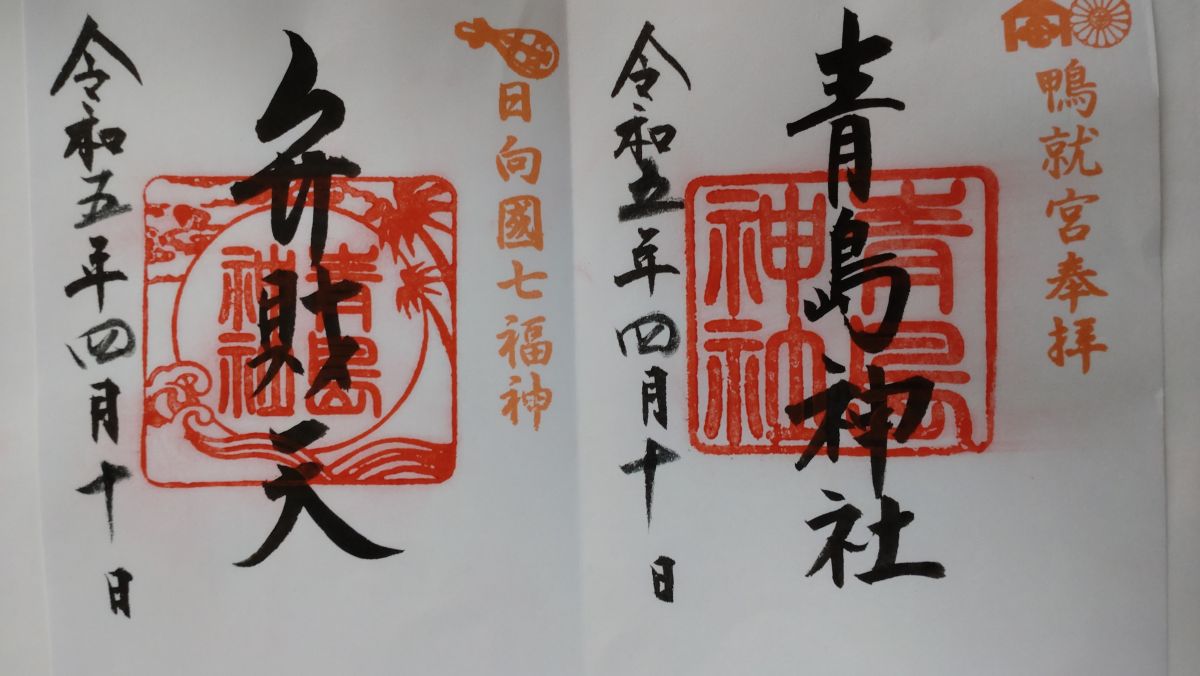 鴨就宮奉拝
青島神社
青島
神社
令和五年四月十日
日向國七福神
弁財天
青島
神社
令和五年四月十日